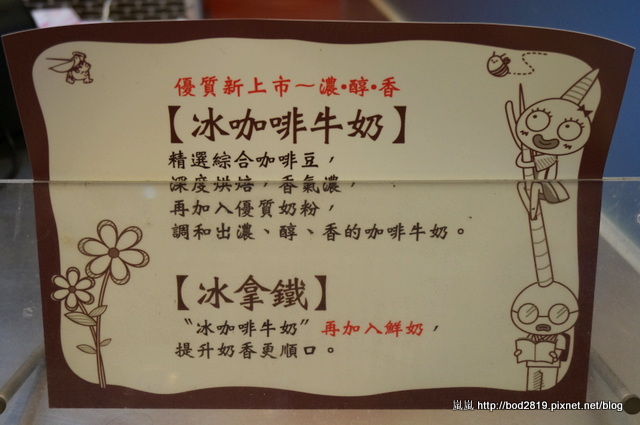 優質新上市～濃•醇•香
【冰咖啡牛奶】
精選綜合咖啡豆，
深度烘焙，香氣濃，
再加入優質奶粉，
調和出濃、醇、香的咖啡牛奶。
【冰拿鐵】
〝冰咖啡牛奶〞再加入鮮奶，
提升奶香更順口。
嵐嵐 http://bod2819.pixnet.net/blog